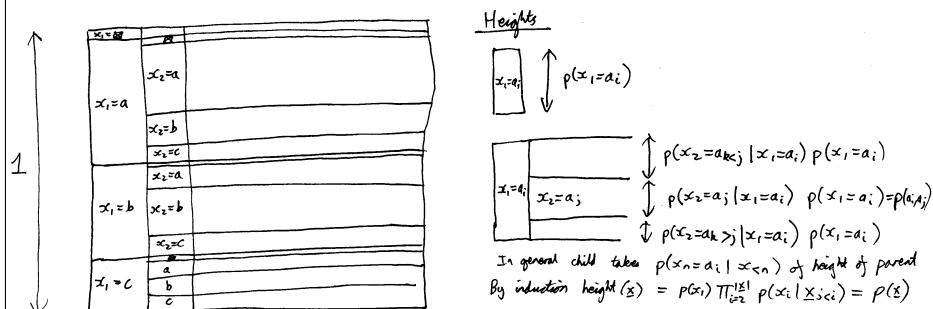 1
x₁=☒
x₁=a
x₂=a
x₂=b
x₂=c
x₁=b
x₂=a
x₂=b
x₂=c
x₁=c
a
b
c
Heights
x₁=aᵢ
p(x₁=aᵢ)
x₁=aᵢ
x₂=aⱼ
p(x₂=aₖ<ⱼ|x₁=aᵢ) p(x₁=aᵢ)
p(x₂=aⱼ|x₁=aᵢ) p(x₁=aᵢ)=p(aᵢaⱼ)
p(x₂=aₖ>ⱼ|x₁=aᵢ) p(x₁=aᵢ)
In general child takes p(xₙ=aᵢ|x<ₙ) of height of parent
By induction height(x) = p(x₁) ∏ᵢ₌₂^|x| p(xᵢ|xⱼ<ᵢ) = p(x)